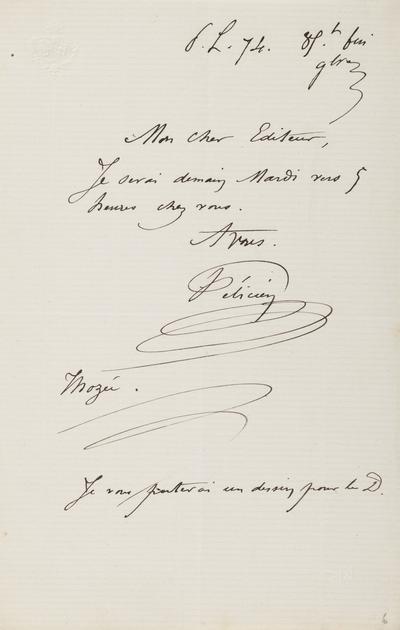 Mon cher Editeur,
Je serai demain Mardi vers 5
heures chez vous.
A vous.
Félicien
Je vous porterai un dessin pour le D.
6